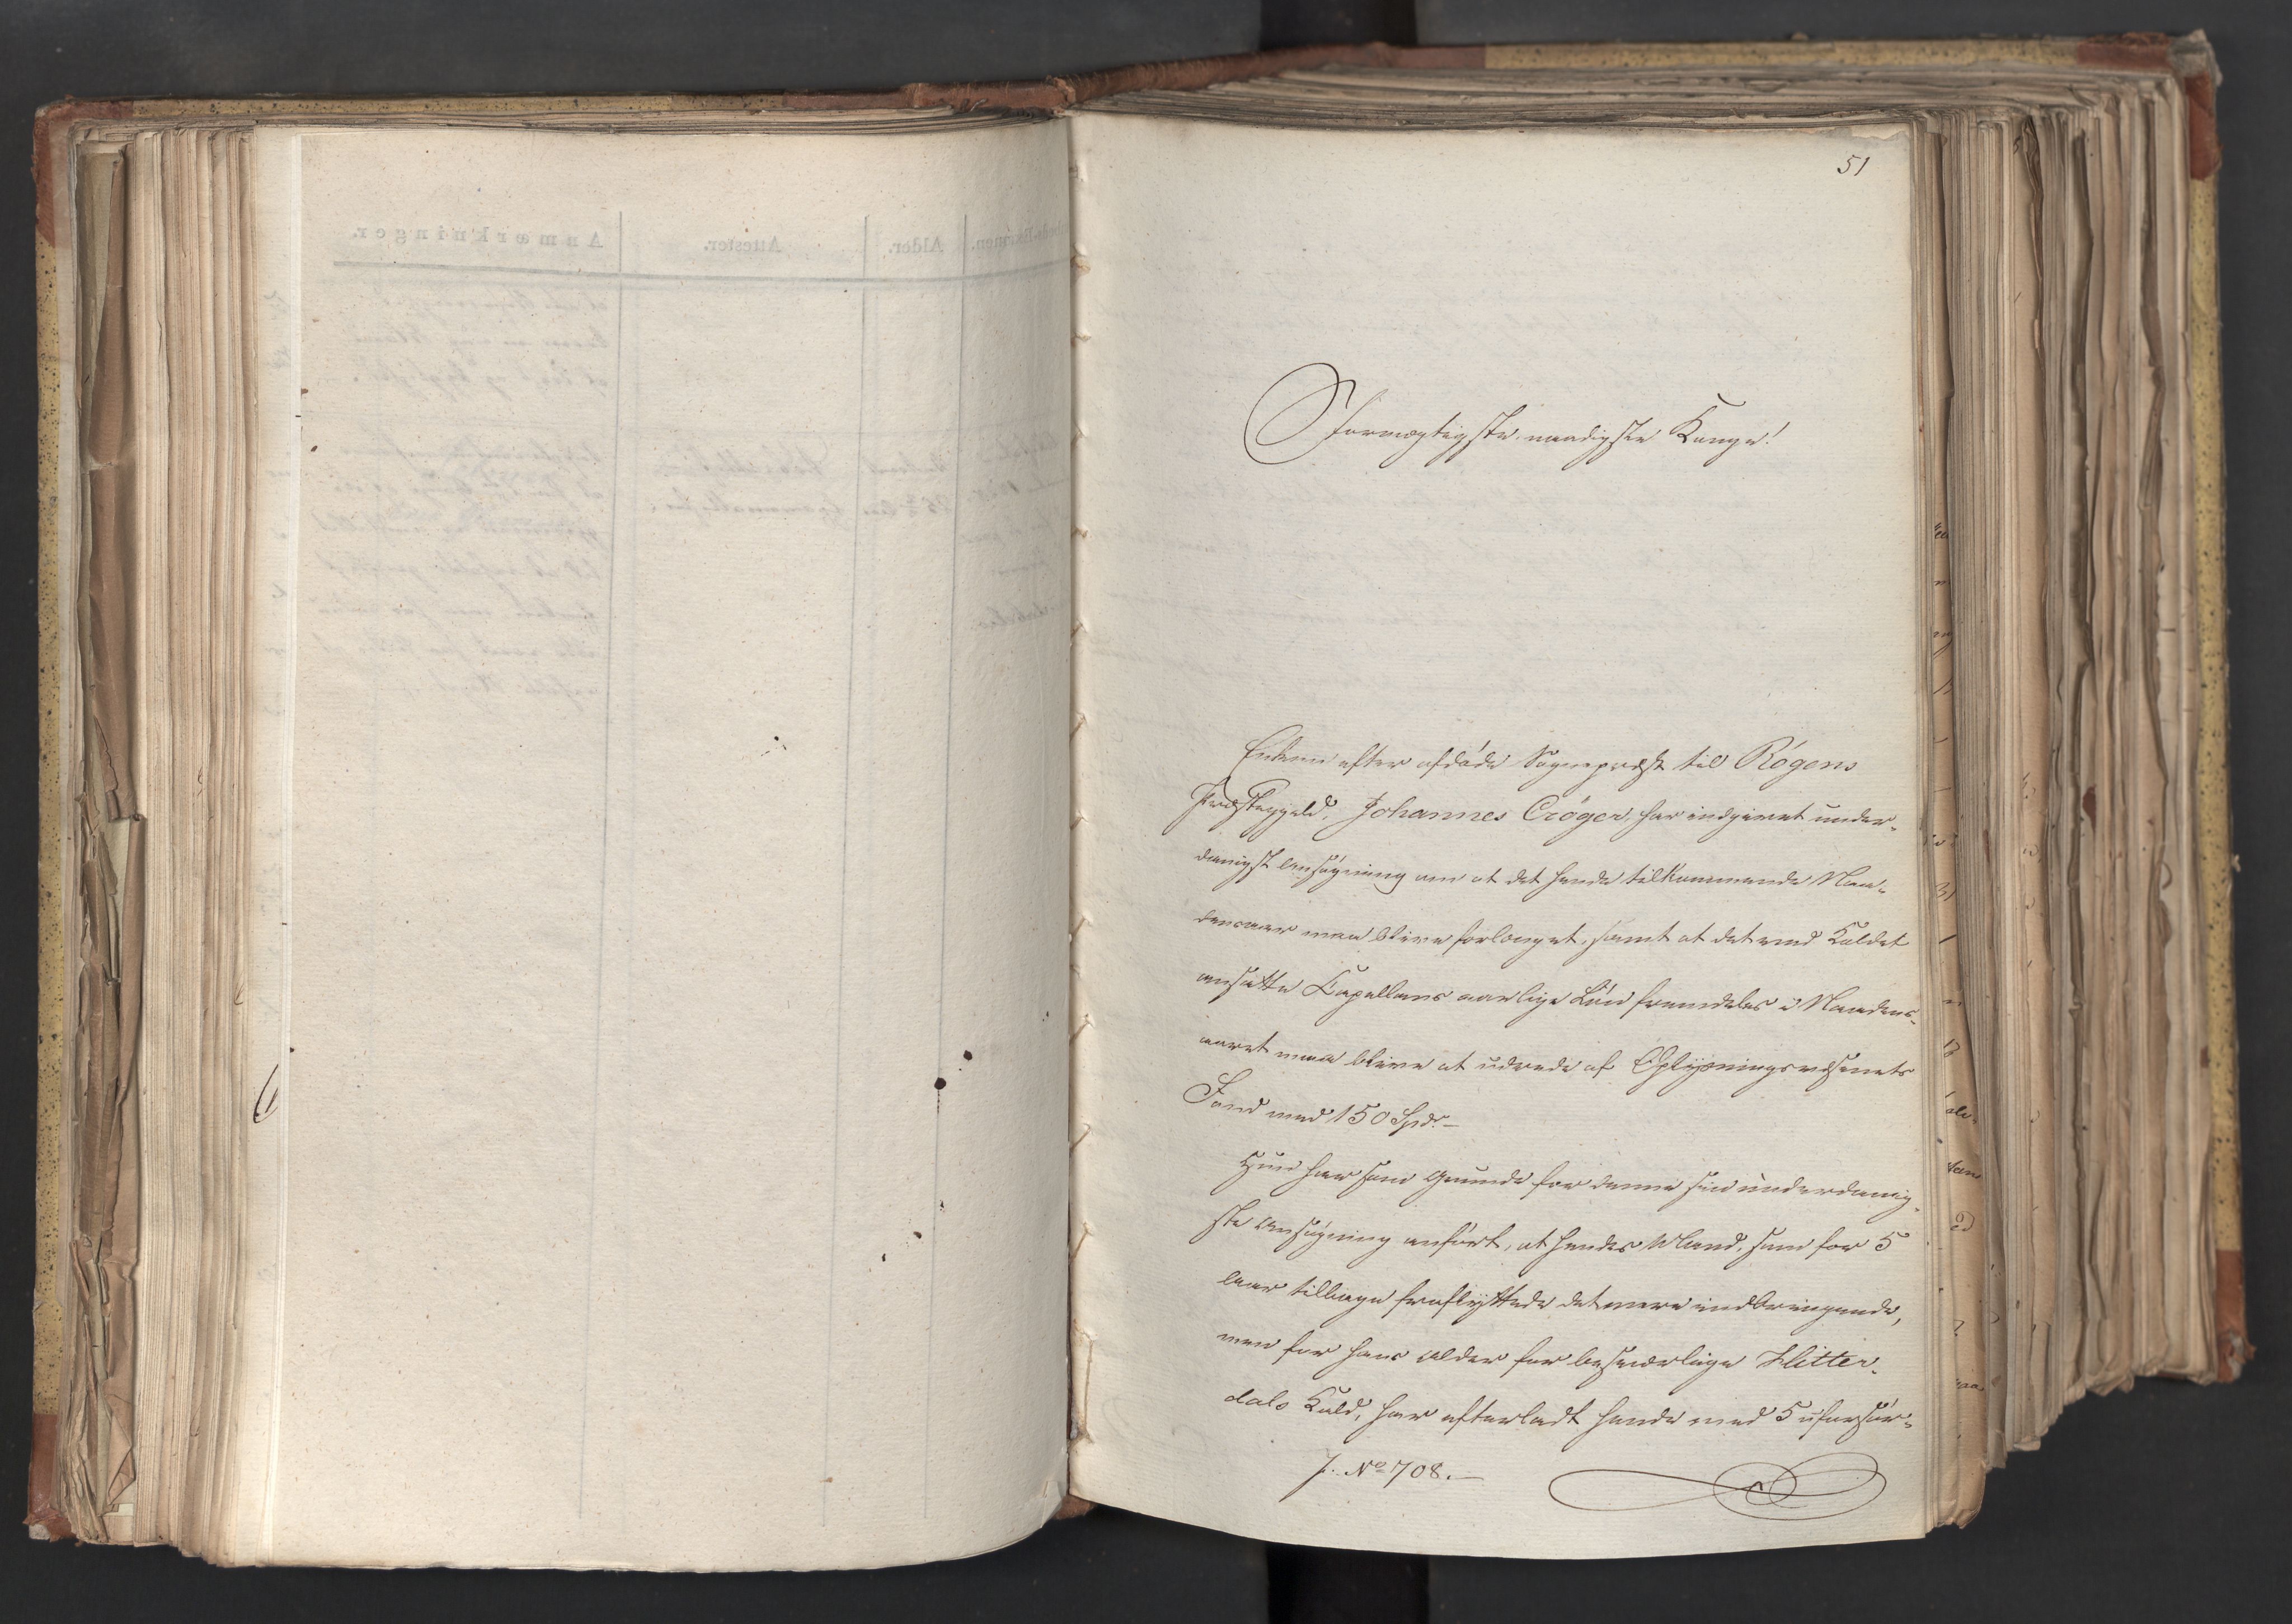 51
Stormægtigste, naadigste Konge!
Enken efter afdøde Sognepræst til Røgens
Præstegjeld, Johannes Crøger, har indgivet under-
danigst Ansøgning om at det hende tilkommende Naa-
densaar maa blive forlænget, samt at det ved Kaldet
ansatte Capellans aarlige Løn fremdeles i Naadens-
aaret maa blive at udrede af Oplysningsvæsenets
Fond med 150 Spd.-
Hun har som Grunde for denne sin underdanig-
ste Ansøgning anført, at hendes Mand, som for 5
Aar tilbage fraflyttede det mere indbringende,
men for hans Alder for besværlige Hitter-
dals Kald, har efterladt hende med 5 uforsør-
J. No 708.-